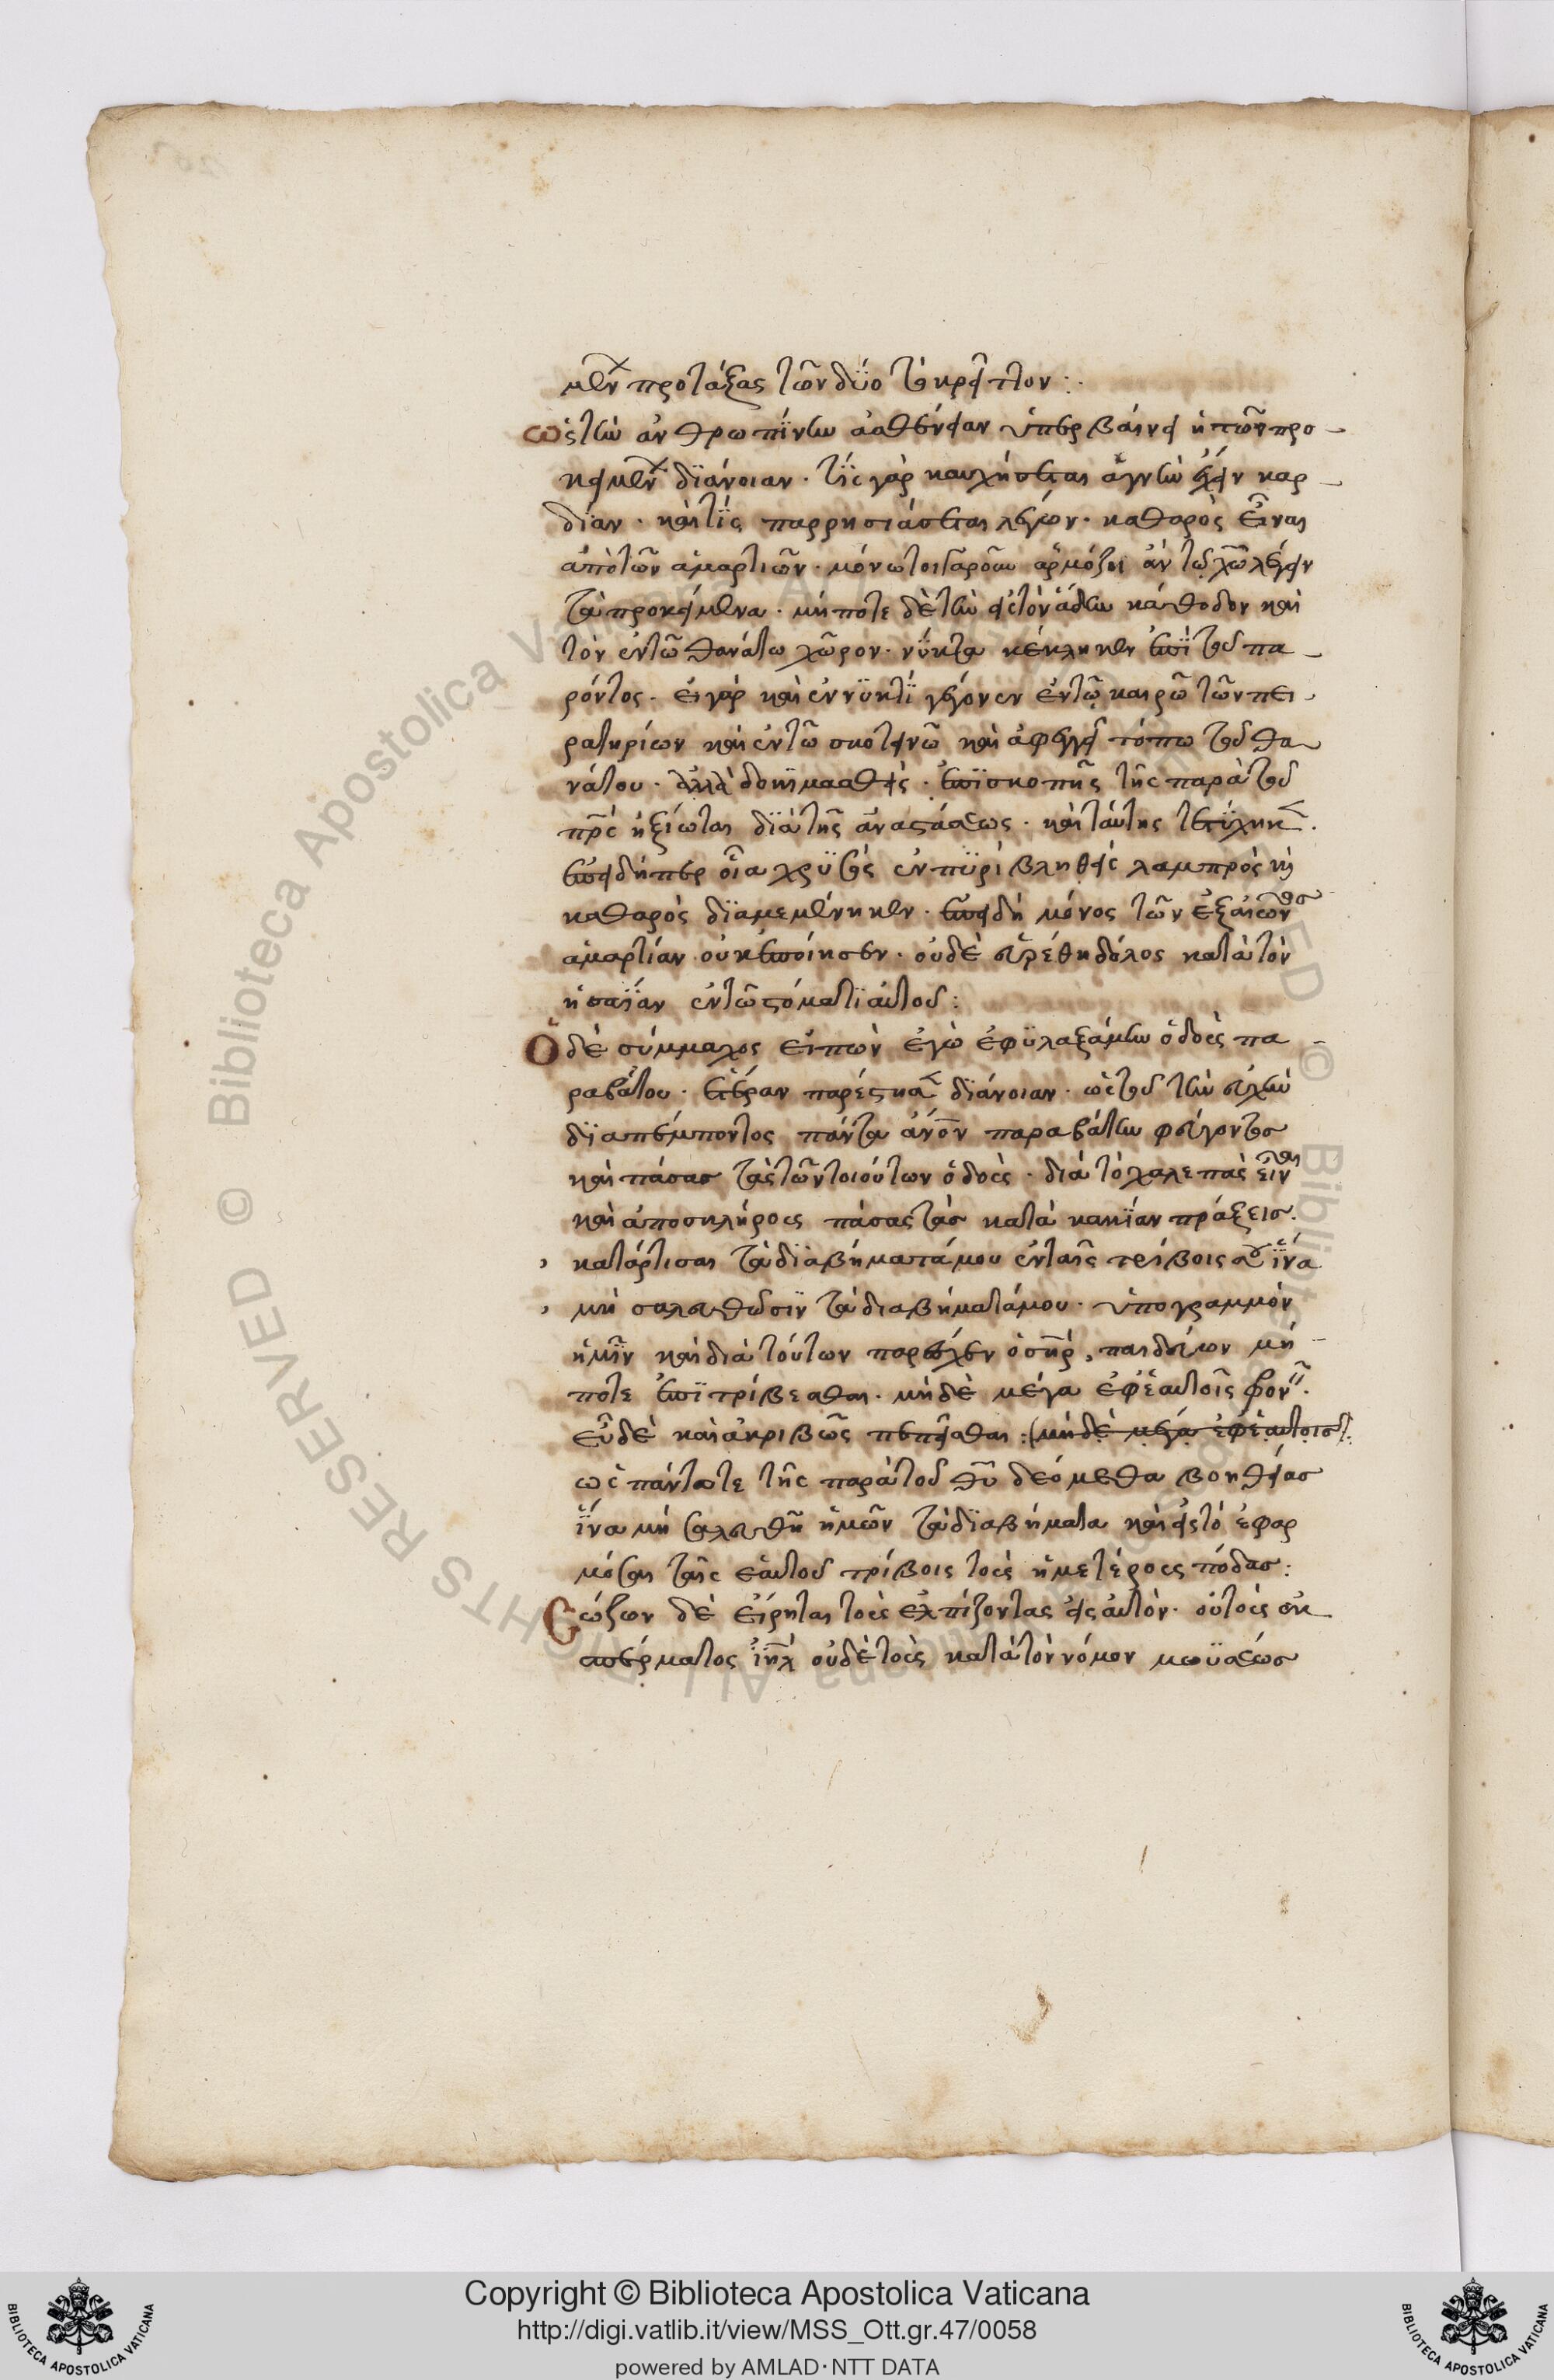 μένων προτάξας τῶν δύο τὸ κρεῖττον:
ὡς τὴν ἀνθρωπίνην ἀσθένειαν ὑπερβαίνει ἡ τῶν προ-
κειμένων διάνοιαν. τίς γὰρ καυχήσεται ἁγνὴν ἔχειν καρ-
δίαν. καὶ τίς παρρησιάσεται λέγων. καθαρὸς εἶναι
ἀπὸ τῶν ἁμαρτιῶν. μόνω ἁρμόζει ἂν τῷ χῶ λέγειν
τὰ προκείμενα. μήποτε δὲ τὴν εἰς τὸν ἅδην κάθοδον καὶ
τὸν ἐν τῶ θανάτω χῶρον. νύκτα κέκληκεν ἐπὶ τοῦ πα-
ρόντος. εἰ γὰρ καὶ ἐν νυκτὶ γέγονεν ἐν τῶ καιρῶ τῶν πει-
ρατηρίων καὶ ἐν τῶ σκοτεινῶ καὶ ἀφεγγεῖ τόπω τοῦ θα-
νάτου. ἀλλὰ δοκιμασθεὶς. ἐπισκοπῆς τῆς παρὰ τοῦ
πρς ἠξίωται διὰ τῆς ἀναστάσεως. καὶ ταύτης τετύχηκε.
ἐπειδήπερ οἷα χρυσὸς ἐν πυρὶ βληθεὶς λαμπρὸς καὶ
καθαρὸς διαμεμένηκεν. ἐπειδὴ μόνος τῶν ἐξ αἰῶνος
ἁμαρτίαν οὐκ ἐποίησεν. οὐδὲ εὑρέθη δόλος κατὰ τὸν
ἡσαΐαν ἐν τῶ στόματι αὐτοῦ:
Ὁ δὲ σύμμαχος εἰπὼν ἐγὼ ἐφυλαξάμην ὁδοὺς πα-
ραβάτου. ἑτέραν παρέστησε διάνοιαν. ὡς τοῦ τὴν εὐχὴν
διαπέμποντος πάντα ἀνον παραβάτην φεύγοντος
καὶ πάσας τὰς τῶν τοιούτων ὁδοὺς. διὰ τὸ χαλεπὰς εἶναι
καὶ ἀποσκλήρους πάσας τὰς κατὰ κακίαν πράξεις.
κατάρτισαι τὰ διαβήματά μου ἐν ταῖς τρίβοις σου ἵνα
μὴ σαλευθῶσιν τὰ διαβήματά μου. ὑπογραμμὸν
ἡμῖν καὶ διὰ τούτων παρεῖχεν ὁ σηρ, παιδεύων μή
ποτε ἐπιτρίβεσθαι. μηδὲ μέγα ἐφ' ἑαυτοῖς φρονεῖν.
εὖ δὲ καὶ ἀκριβῶς πεπεῖσθαι: (μηδὲ μέγα ἐφ' ἑαυτοῖς):
ὡς πάντοτε τῆς παρὰ τοῦ θυ δεόμεθα βοηθείας
ἵνα μὴ σαλευθῆ ἡμῶν τὰ διαβήματα καὶ εἰς τὸ ἐφαρ
μόσαι ταῖς ἑαυτοῦ τρίβοις τοὺς ἡμετέρους πόδας:
Σώζων δὲ εἴρηται τοὺς ἐλπίζοντας εἰς αὐτὸν. οὐ τοὺς ἐκ
σπέρματος ἰηλ οὐδὲ τοὺς κατὰ τὸν νόμον μωϋσέως
Copyright © Biblioteca Apostolica Vaticana
http://digi.vatlib.it/view/MSS_Ott.gr.47/0058
powered by AMLAD·NTT DATA